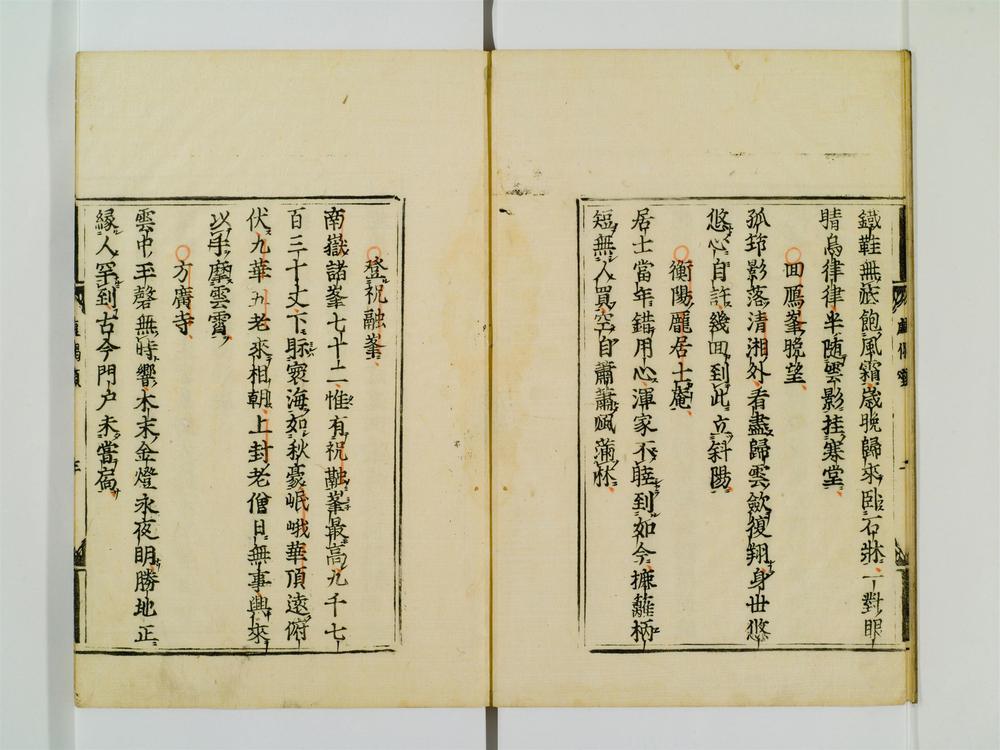 鐵鞋無旅飽風霜歳晩歸來卧石牀一對眼
睛烏律律半随雲影挂寒堂
回鴈峯晩望
孤筇影落清湘外看盡歸雲斂復翔身世悠
悠心自許幾回到此立斜陽
衡陽龐居士菴
居士當年錯用心渾家不睦到如今攎籬柄
短無人買空自蕭蕭風滿牀
登祝融峯
南嶽諸峯七十二惟有祝融峯最高九千七
百三十丈下眎寰海如秋豪岷峨華頂遠俯
伏九華五老來相朝上封老僧日無事興來
以手摩雲霄
方廣寺
雲中玉磬無時響木末金燈永夜明勝地正
縁人罕到古今門户未當扃